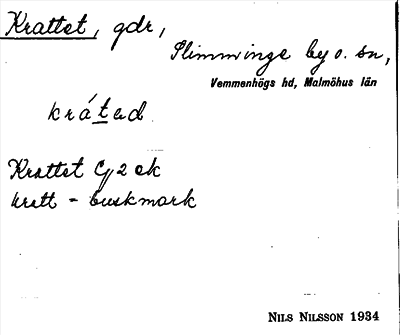 Krattet, gdr,
Slimminge by o. sn,
Vemmenhögs hd, Malmöhus län
krátad
Krattet Cg 2 ek
kratt = buskmark
NILS NILSSON 1934